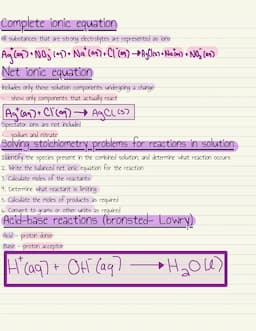 Complete ionic equation
All substances that are strong electrolytes are represented as ions
Ag⁺(aq) + NO₃⁻(aq) + Na⁺(aq) + Cl⁻(aq) → AgCl(s) + Na⁺(aq) + NO₃⁻(aq)
Net ionic equation
Includes only those solution components undergoing a change
show only components that actually react
Ag⁺(aq) + Cl⁻(aq) → AgCl(s)
Spectator ions are not included
sodium and nitrate
Solving stoichiometry problems for reactions in solution
1. Identify the species present in the combined solution, and determine what reaction occurs
2. Write the balanced net ionic equation for the reaction
3. Calculate moles of the reactants
4. Determine what reactant is limiting
5. Calculate the moles of products as required
6. Convert to grams or other units as required
Acid-base reactions (bronsted-Lowry)
Acid - proton donor
Base - proton acceptor
H⁺(aq) + OH⁻(aq) → H₂O(l)